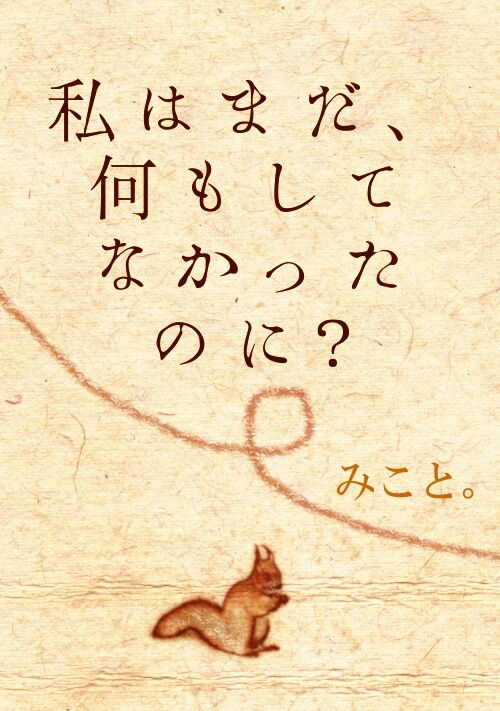 私はまだ、
何もして
なかった
のに？
みこと。